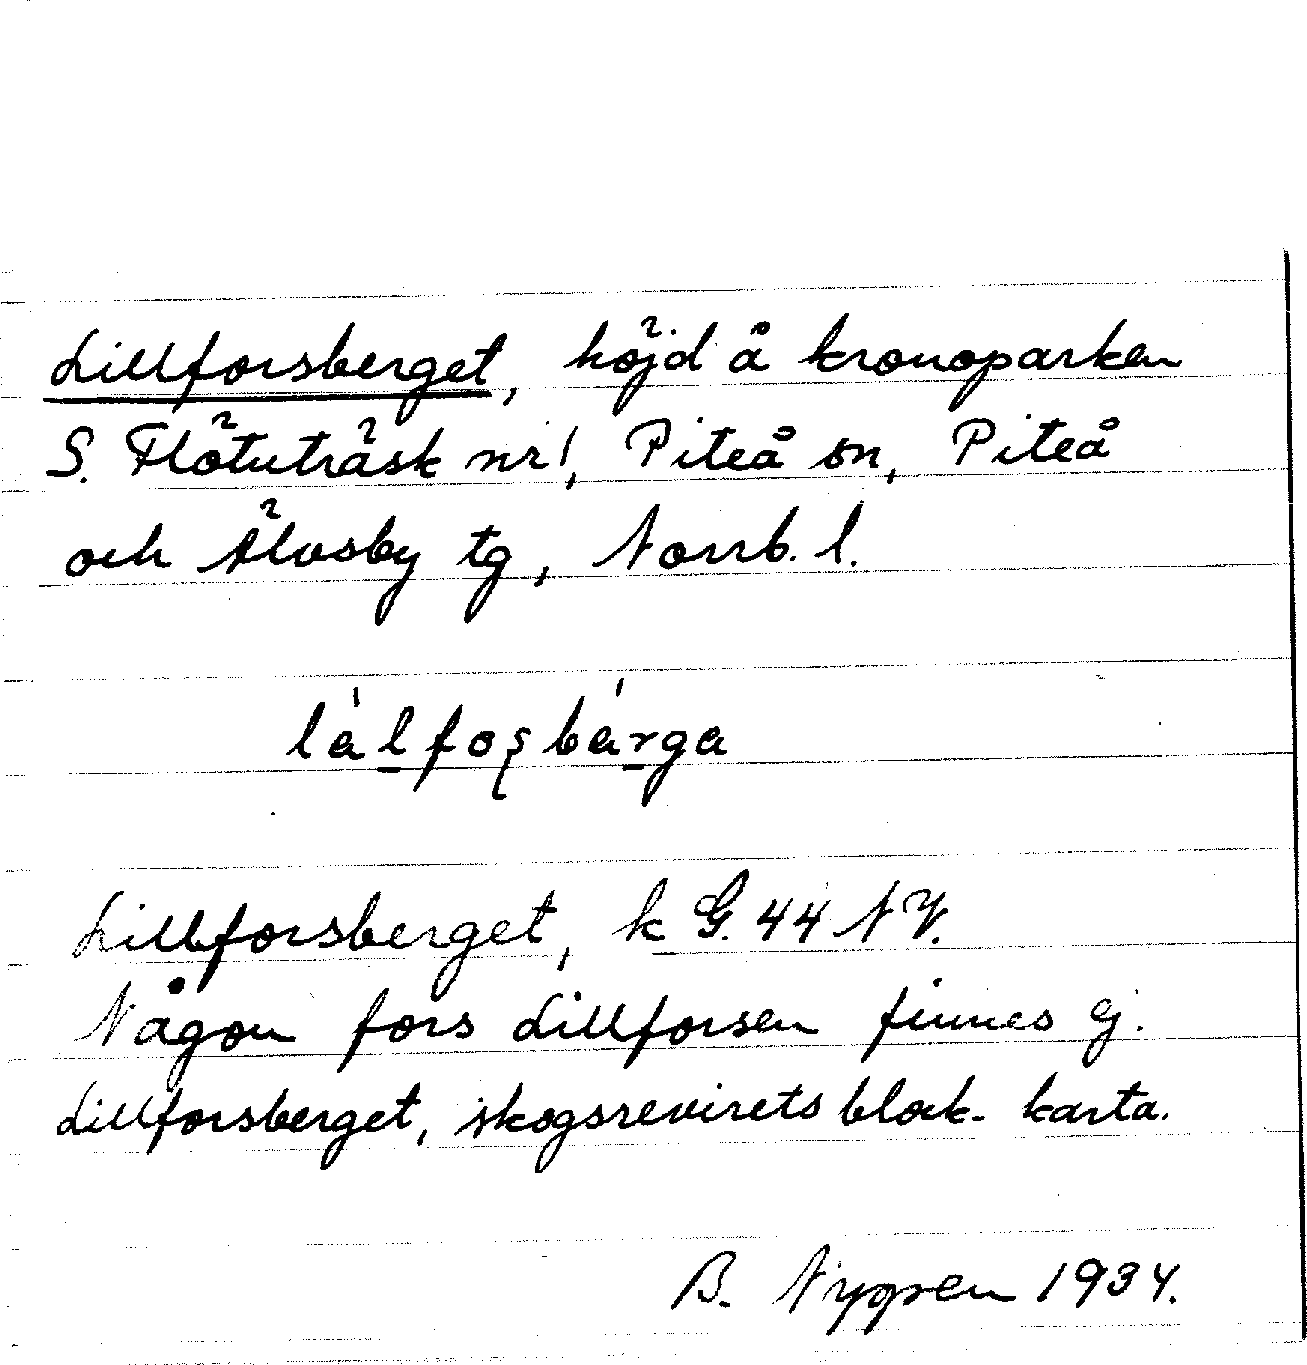 Lillforsberget, höjd å kronoparken
S. Flötuträsk nr 1, Piteå sn, Piteå
och Älvsby tg, Norrb. l.
lálfoʂbárga
Lillforsberget, k G. 44 NV.
Någon fors Lillforsen finnes ej.
Lillforsberget, skogsrevirets block-karta.
B. Nygren 1934.